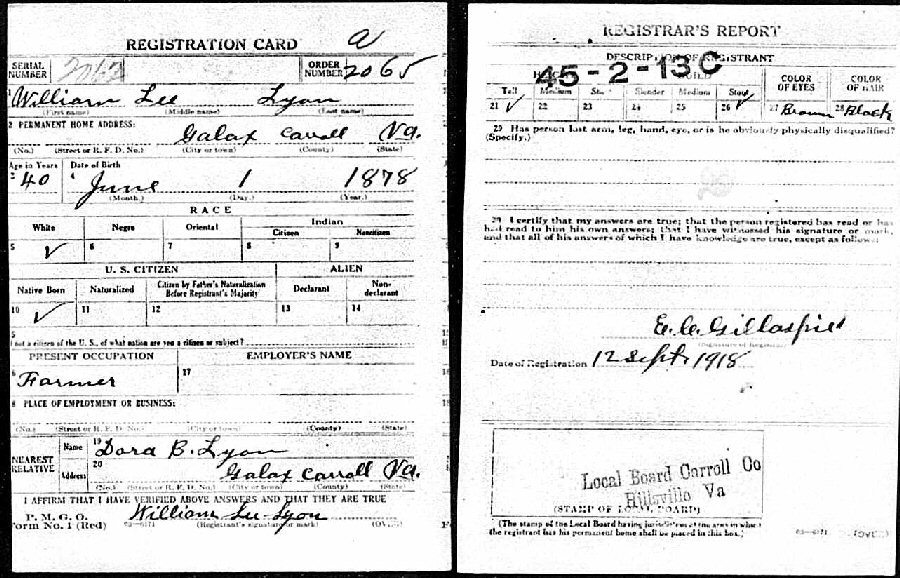 REGISTRATION CARD a
SERIAL NUMBER
ORDER NUMBER 2065
1 William Lee Lyon
(First name) (Middle name) (Last name)
2 PERMANENT HOME ADDRESS:
Galax Carroll Va.
(No.) (Street or R. F. D. No.) (City or town) (County) (State)
Age in Years Date of Birth
3 40 4 June 1 1878
(Month.) (Day.) (Year.)
RACE
White Negro Oriental Indian
Citizen Noncitizen
5 ✓ 6 7 8 9
U. S. CITIZEN ALIEN
Native Born Naturalized Citizen by Father's Naturalization Before Registrant's Majority Declarant Non-declarant
10 ✓ 11 12 13 14
5
not a citizen of the U. S., of what nation are you a citizen or subject?
PRESENT OCCUPATION EMPLOYER'S NAME
6 Farmer 17
8 PLACE OF EMPLOYMENT OR BUSINESS:
(No.) (Street or R. F. D. No.) (City or town) (County) (State)
NEAREST RELATIVE
Name 19 Dora B. Lyon
Address 20 Galax Carroll Va.
(No.) (Street or R. F. D. No.) (City or town) (County) (State)
I AFFIRM THAT I HAVE VERIFIED ABOVE ANSWERS AND THAT THEY ARE TRUE
P. M. G. O.
Form No. 1 (Red) William Lee Lyon
(Registrant's signature or mark) (OVER)
REGISTRAR'S REPORT
DESCRIPTION OF REGISTRANT
45-2-13 C
BUILD COLOR OF EYES COLOR OF HAIR
Tall Medium Slender Medium Stout
21 ✓ 22 23 24 25 26 ✓ 27 Brown 28 Black
29 Has person lost arm, leg, hand, eye, or is he obviously physically disqualified?
(Specify.)
I certify that my answers are true; that the person registered has read or has
had read to him his own answers; that I have witnessed his signature or mark,
and that all of his answers of which I have knowledge are true, except as follows:
E. C. Gillaspie
Date of Registration 12 Sept. 1918
Local Board Carroll Co
Hillsville Va
(STAMP OF LOCAL BOARD)
(The stamp of the Local Board having jurisdiction of the area in which
the registrant has his permanent home shall be placed in this box.)